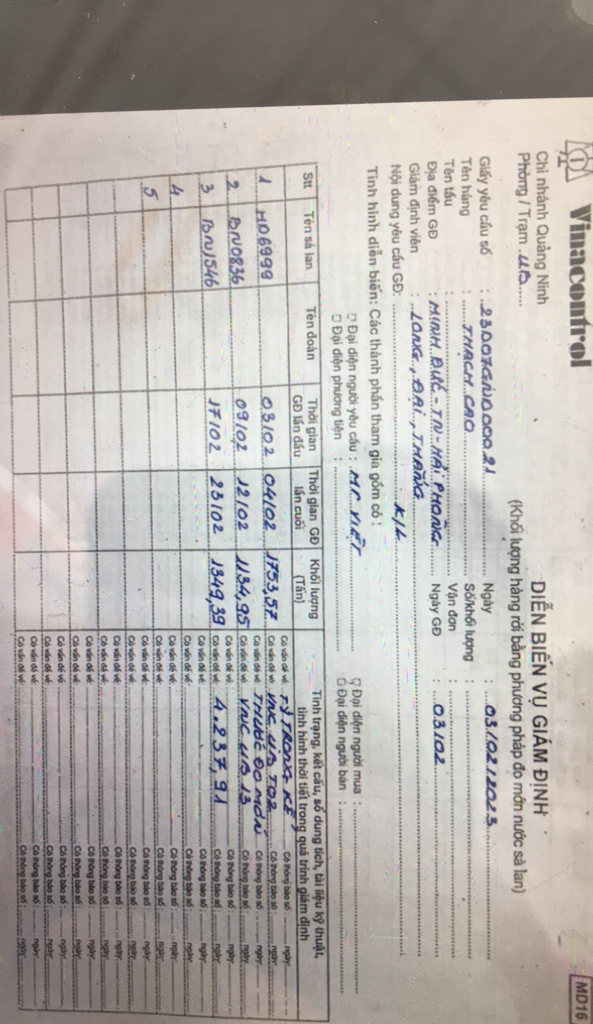 Vinacontrol
MD16
Chi nhánh Quảng Ninh
Phòng / Trạm : UB
DIỄN BIẾN VỤ GIÁM ĐỊNH
(Khối lượng hàng rời bằng phương pháp đo mớn nước sà lan)
Giấy yêu cầu số : 23D07GND00021 Ngày : 03/02/2023
Tên hàng : THẠCH CAO Số/khối lượng :
Tên tầu : Vận đơn :
Địa điểm GĐ : MINH ĐỨC - TN - HẢI PHÒNG Ngày GĐ : 03/02
Giám định viên : LONG, ĐẠI, THẮNG
Nội dung yêu cầu GĐ: K/L
Tình hình diễn biến: Các thành phần tham gia gồm có :
Đại diện người yêu cầu : Mr VIỆT Đại diện người mua :
Đại diện phương tiện : Đại diện người bán :
Stt Tên sà lan Tên đoàn Thời gian GĐ lần đầu Thời gian GĐ lần cuối Khối lượng (Tấn) Tình trạng, kết cấu, sổ dung tích, tài liệu kỹ thuật, tình hình thời tiết trong quá trình giám định
1 HD6999 03/02 04/02 1753,57 Có vấn đề về: TỶ TRỌNG KẾ, Có thông báo số: ngày:
Có vấn đề về: VNC UB T02 Có thông báo số: ngày:
2 BN0836 09/02 12/02 1134,95 Có vấn đề về: THƯỚC ĐO MỚN Có thông báo số: ngày:
Có vấn đề về: VNC UB 13 Có thông báo số: ngày:
3 BN1546 17/02 23/02 1349,39 Có vấn đề về: 4.237,91 Có thông báo số: ngày:
4 Có vấn đề về: Có thông báo số: ngày:
5 Có vấn đề về: Có thông báo số: ngày: